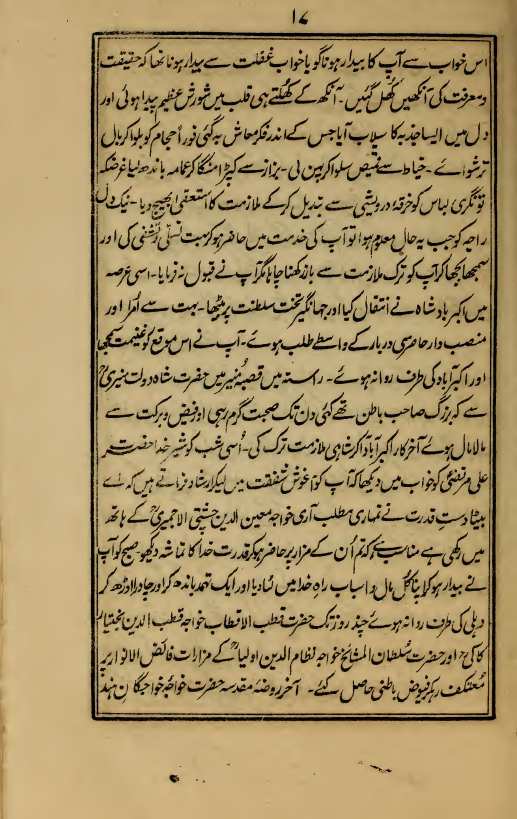 ۱۷
اس خواب سے آپ کا بیدار ہونا گویا خواب غفلت سے بیدار ہونا تھا کہ حقیقت
و معرفت کی آنکھیں کُھل گئیں ۔ آنکھ کے کُھلتے ہی قلب میں شورش عظیم پیدا ہوئی اور
دل میں ایسا جذبہ کا سیلاب آیا جس کے اندر فکر معاش بہ گئی فوراً حجام کو بلوا کر بال
ترشوائے ۔ خیاط سے قمیص سلوا کر پہن لی ۔ بزاز سے کپڑا منگا کر عمامہ باندھ لیا غرضکہ
تونگری لباس کو خرقۂ درویشی سے تبدیل کر کے ملازمت کا استعفیٰ بھیج دیا ۔ نیک دل
راجہ کو جب یہ حال معلوم ہوا تو آپ کی خدمت میں حاضر ہو کر بہت تسلی و تشفی کی اور
سمجھا بجھا کر آپ کو ترک ملازمت سے باز رکھنا چاہا مگر آپ نے قبول نہ فرمایا ۔ اسی عرصہ
میں اکبر بادشاہ نے انتقال کیا اور جہانگیر تخت سلطنت پر بیٹھا ۔ بہت سے اُمرا اور
منصب دار حاضری دربار کے واسطے طلب ہوئے ۔ آپ نے اس موقع کو غنیمت سمجھا
اور اکبر آباد کی طرف روانہ ہوئے ۔ راستہ میں قصبۂ منیر میں حضرت شاہ دولت منیریؒ
سے کہ بزرگ صاحب باطن تھے کئی دن تک صحبت گرم رہی اور فیض و برکت سے
مالا مال ہوئے آخر کار اکبر آباد آ کر شاہی ملازمت ترک کی ۔ اُسی شب کو شیر خدا حضرت
علی مرتضیٰؓ کو خواب میں دیکھا کہ آپ کو آغوش شفقت میں لیکر ارشاد فرماتے ہیں کہ اے
بیٹا دستِ قدرت نے تمہاری مطلب آری خواجہ معین الدین چشتی الاجمیریؒ کے ہاتھ
میں رکھی ہے مناسب ہے کہ تم اُن کے مزار پر حاضر ہو کر قدرت خدا کا تماشہ دیکھو ۔ صبح کو آپ
نے بیدار ہو کر اپنا کُل مال و اسباب راہِ خدا میں لٹا دیا اور ایک تہمد باندھ کر اور چادر اوڑھ کر
دہلی کی طرف روانہ ہوئے چند روز تک حضرت قطب الاقطاب خواجہ قطب الدین بختیار
کاکیؒ اور حضرت سُلطان المشائخ خواجہ نظام الدین اولیاؒ کے مزارات فائض الانوار پر
مُعتکف رہ کر فیوض باطنی حاصل کئے ۔ آخر روضۂ مقدسہ حضرت خواجۂ خواجگان ہند